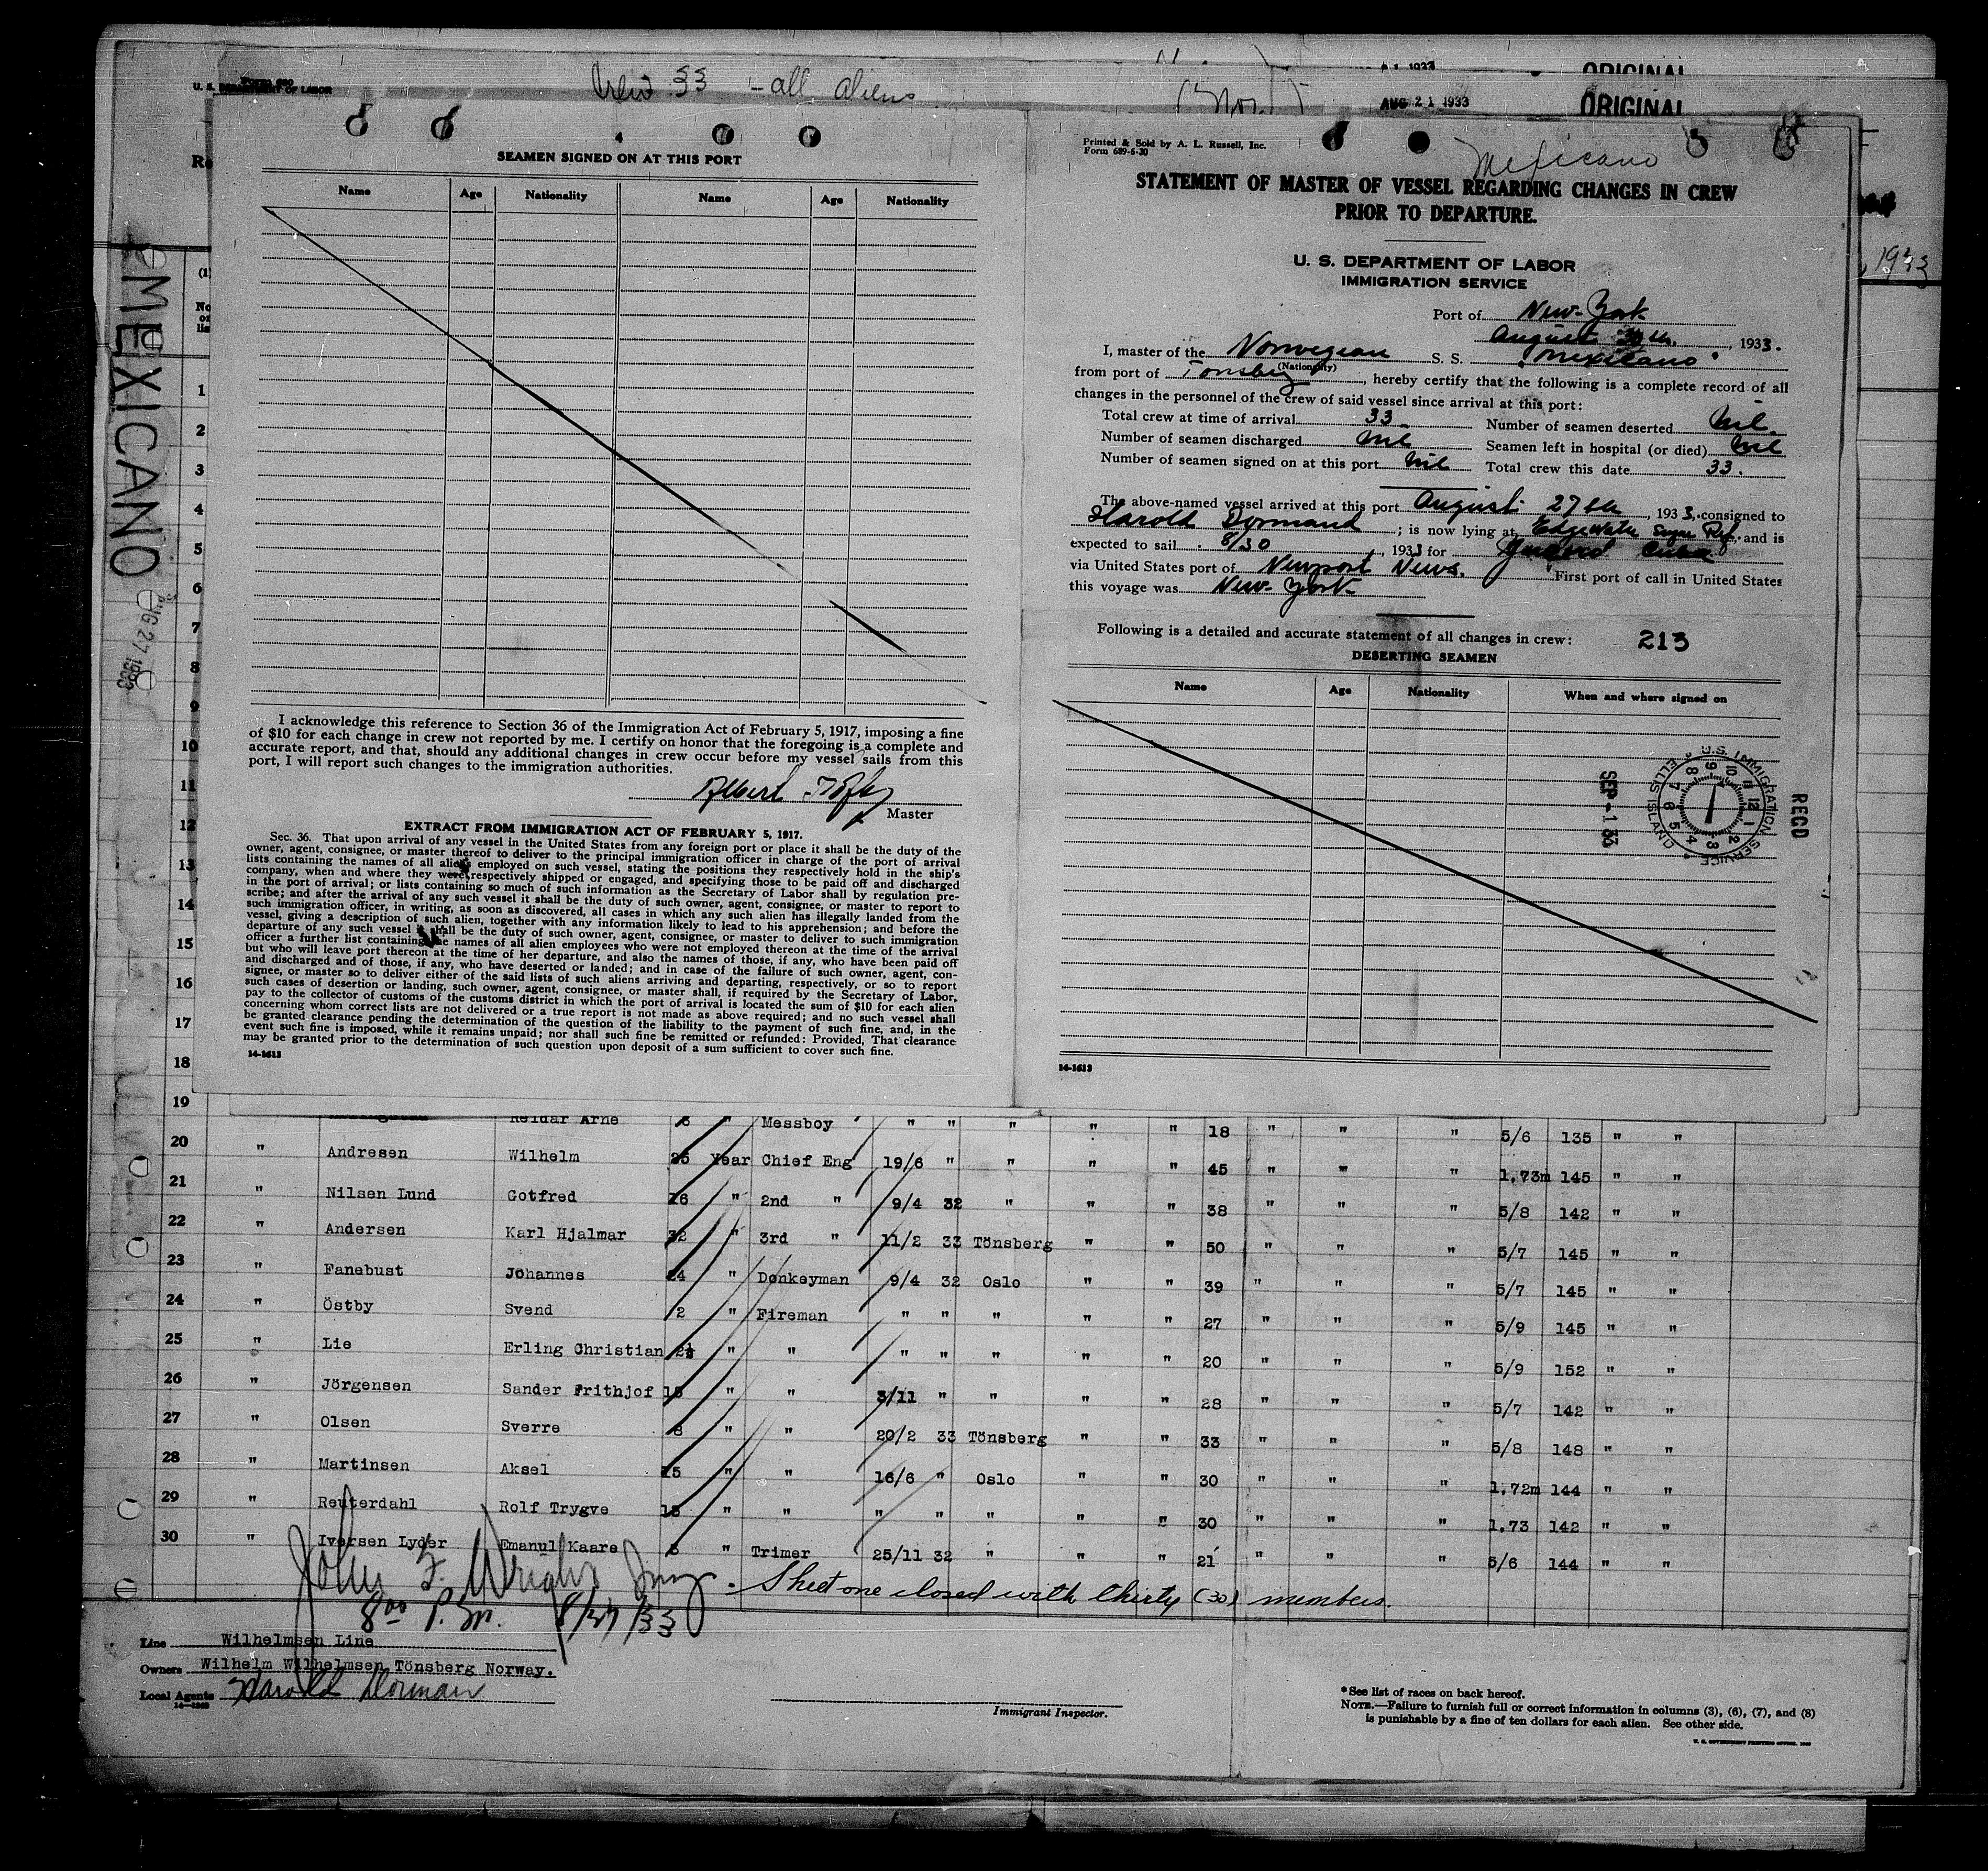 Form 680
U. S. DEPARTMENT OF LABOR
Crew 33 - all aliens
AUG 21 1933
ORIGINAL
ORIGINAL
, 1933
MEXICANO
AUG 27 1933
SEAMEN SIGNED ON AT THIS PORT
Name Age Nationality Name Age Nationality
I acknowledge this reference to Section 36 of the Immigration Act of February 5, 1917, imposing a fine
of $10 for each change in crew not reported by me. I certify on honor that the foregoing is a complete and
accurate report, and that, should any additional changes in crew occur before my vessel sails from this
port, I will report such changes to the immigration authorities.
Albert
Master
EXTRACT FROM IMMIGRATION ACT OF FEBRUARY 5, 1917.
Sec. 36. That upon arrival of any vessel in the United States from any foreign port or place it shall be the duty of the
owner, agent, consignee, or master thereof to deliver to the principal immigration officer in charge of the port of arrival
lists containing the names of all aliens employed on such vessel, stating the positions they respectively hold in the ship's
company, when and where they were respectively shipped or engaged, and specifying those to be paid off and discharged
in the port of arrival; or lists containing so much of such information as the Secretary of Labor shall by regulation pre-
scribe; and after the arrival of any such vessel it shall be the duty of such owner, agent, consignee, or master to report to
such immigration officer, in writing, as soon as discovered, all cases in which any such alien has illegally landed from the
vessel, giving a description of such alien, together with any information likely to lead to his apprehension; and before the
departure of any such vessel it shall be the duty of such owner, agent, consignee, or master to deliver to such immigration
officer a further list containing the names of all alien employees who were not employed thereon at the time of the arrival
but who will leave port thereon at the time of her departure, and also the names of those, if any, who have been paid off
and discharged and of those, if any, who have deserted or landed; and in case of the failure of such owner, agent, con-
signee, or master so to deliver either of the said lists of such aliens arriving and departing, respectively, or so to report
such cases of desertion or landing, such owner, agent, consignee, or master shall, if required by the Secretary of Labor,
pay to the collector of customs of the customs district in which the port of arrival is located the sum of $10 for each alien
concerning whom correct lists are not delivered or a true report is not made as above required; and no such vessel shall
be granted clearance pending the determination of the question of the liability to the payment of such fine, and, in the
event such fine is imposed, while it remains unpaid; nor shall such fine be remitted or refunded: Provided, That clearance
may be granted prior to the determination of such question upon deposit of a sum sufficient to cover such fine.
14-1613
Printed & Sold by A. L. Russell, Inc.
Form 689-6-30
Mexicano
STATEMENT OF MASTER OF VESSEL REGARDING CHANGES IN CREW
PRIOR TO DEPARTURE.
U. S. DEPARTMENT OF LABOR
IMMIGRATION SERVICE
Port of New-York
August 30th, 1933.
I, master of the Norwegian S. S. "Mexicano"
(Nationality)
from port of Tonsberg, hereby certify that the following is a complete record of all
changes in the personnel of the crew of said vessel since arrival at this port:
Total crew at time of arrival 33 Number of seamen deserted Nil.
Number of seamen discharged Nil Seamen left in hospital (or died) Nil
Number of seamen signed on at this port Nil Total crew this date 33.
The above-named vessel arrived at this port August 27th, 1933, consigned to
Harold Dormand; is now lying at Edgewater Sugar Ref. and is
expected to sail 8/30, 1933 for Cuba
via United States port of Newport News. First port of call in United States
this voyage was New-York
Following is a detailed and accurate statement of all changes in crew: 213
DESERTING SEAMEN
Name Age Nationality When and where signed on
U.S. IMMIGRATION SERVICE ELLIS ISLAND
SEP-1 33
RECD
14-1613
1
2
3
4
5
6
7
8
9
10
11
12
13
14
15
16
17
18
19 Reidar Arne 6 " Messboy " " " " " 18 " " " 5/6 135 " "
20 " Andresen Wilhelm 25 Year Chief Eng 19/6 " " " " 45 " " " 1,73m 145 " "
21 " Nilsen Lund Gotfred 16 " 2nd " 9/4 32 " " " 38 " " " 5/8 142 " "
22 " Andersen Karl Hjalmar 32 " 3rd " 11/2 33 Tönsberg " " 50 " " " 5/7 145 " "
23 " Fanebust Johannes 24 " Donkeyman 9/4 32 Oslo " " 39 " " " 5/7 145 " "
24 " Östby Svend 2 " Fireman " " " " " 27 " " " 5/9 145 " "
25 " Lie Erling Christian 2½ " " " " " " " 20 " " " 5/9 152 " "
26 " Jörgensen Sander Frithjof 15 " " 3/11 " " " " 28 " " " 5/7 142 " "
27 " Olsen Sverre 8 " " 20/2 33 Tönsberg " " 33 " " " 5/8 148 " "
28 " Martinsen Aksel 15 " " 16/6 " Oslo " " 30 " " " 1,72m 144 " "
29 " Reuterdahl Rolf Trygve 15 " " " " " " " 30 " " " 1,73 142 " "
30 " Iversen Lyder Emanul Kaare 5 " Trimer 25/11 32 " " " 21 " " " 5/6 144 " "
John F. Wright Insp. - Sheet one closed with thirty (30) members.
8:00 P.M. 8/27/33
Line Wilhelmsen Line
Owners Wilhelm Wilhelmsen Tönsberg Norway.
Local Agents Harold Dorman
Immigrant Inspector.
*See list of races on back hereof.
NOTE.—Failure to furnish full or correct information in columns (3), (6), (7), and (8)
is punishable by a fine of ten dollars for each alien. See other side.
U. S. GOVERNMENT PRINTING OFFICE